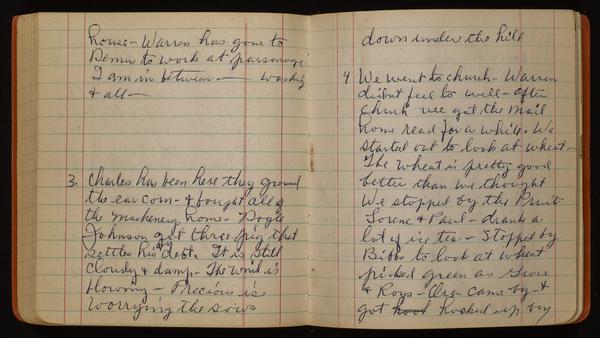 house - Warren has gone to
Bemis to work at parsonage
I am in between — washing
& all —
3. Charles has been here they ground
the ear corn - & bought all of
the machenery home - Doyle
Johnson got three pig that
settles his debt. It is still
cloudy & damp - The wind is
blowing - Precious is
worrying the sows
down under the hill
4 We went to church - Warren
didnt feel to well - after
Church we got the mail
home read for a while. We
started out to look at wheat -
The wheat is pretty good
better than we thought
We stopped by the
Lorene & Paul - drank a
lot of ice tea - Stopped by
Bibbs to look at wheat
picked green as
& Roys - came by &
got hoot hooked up by